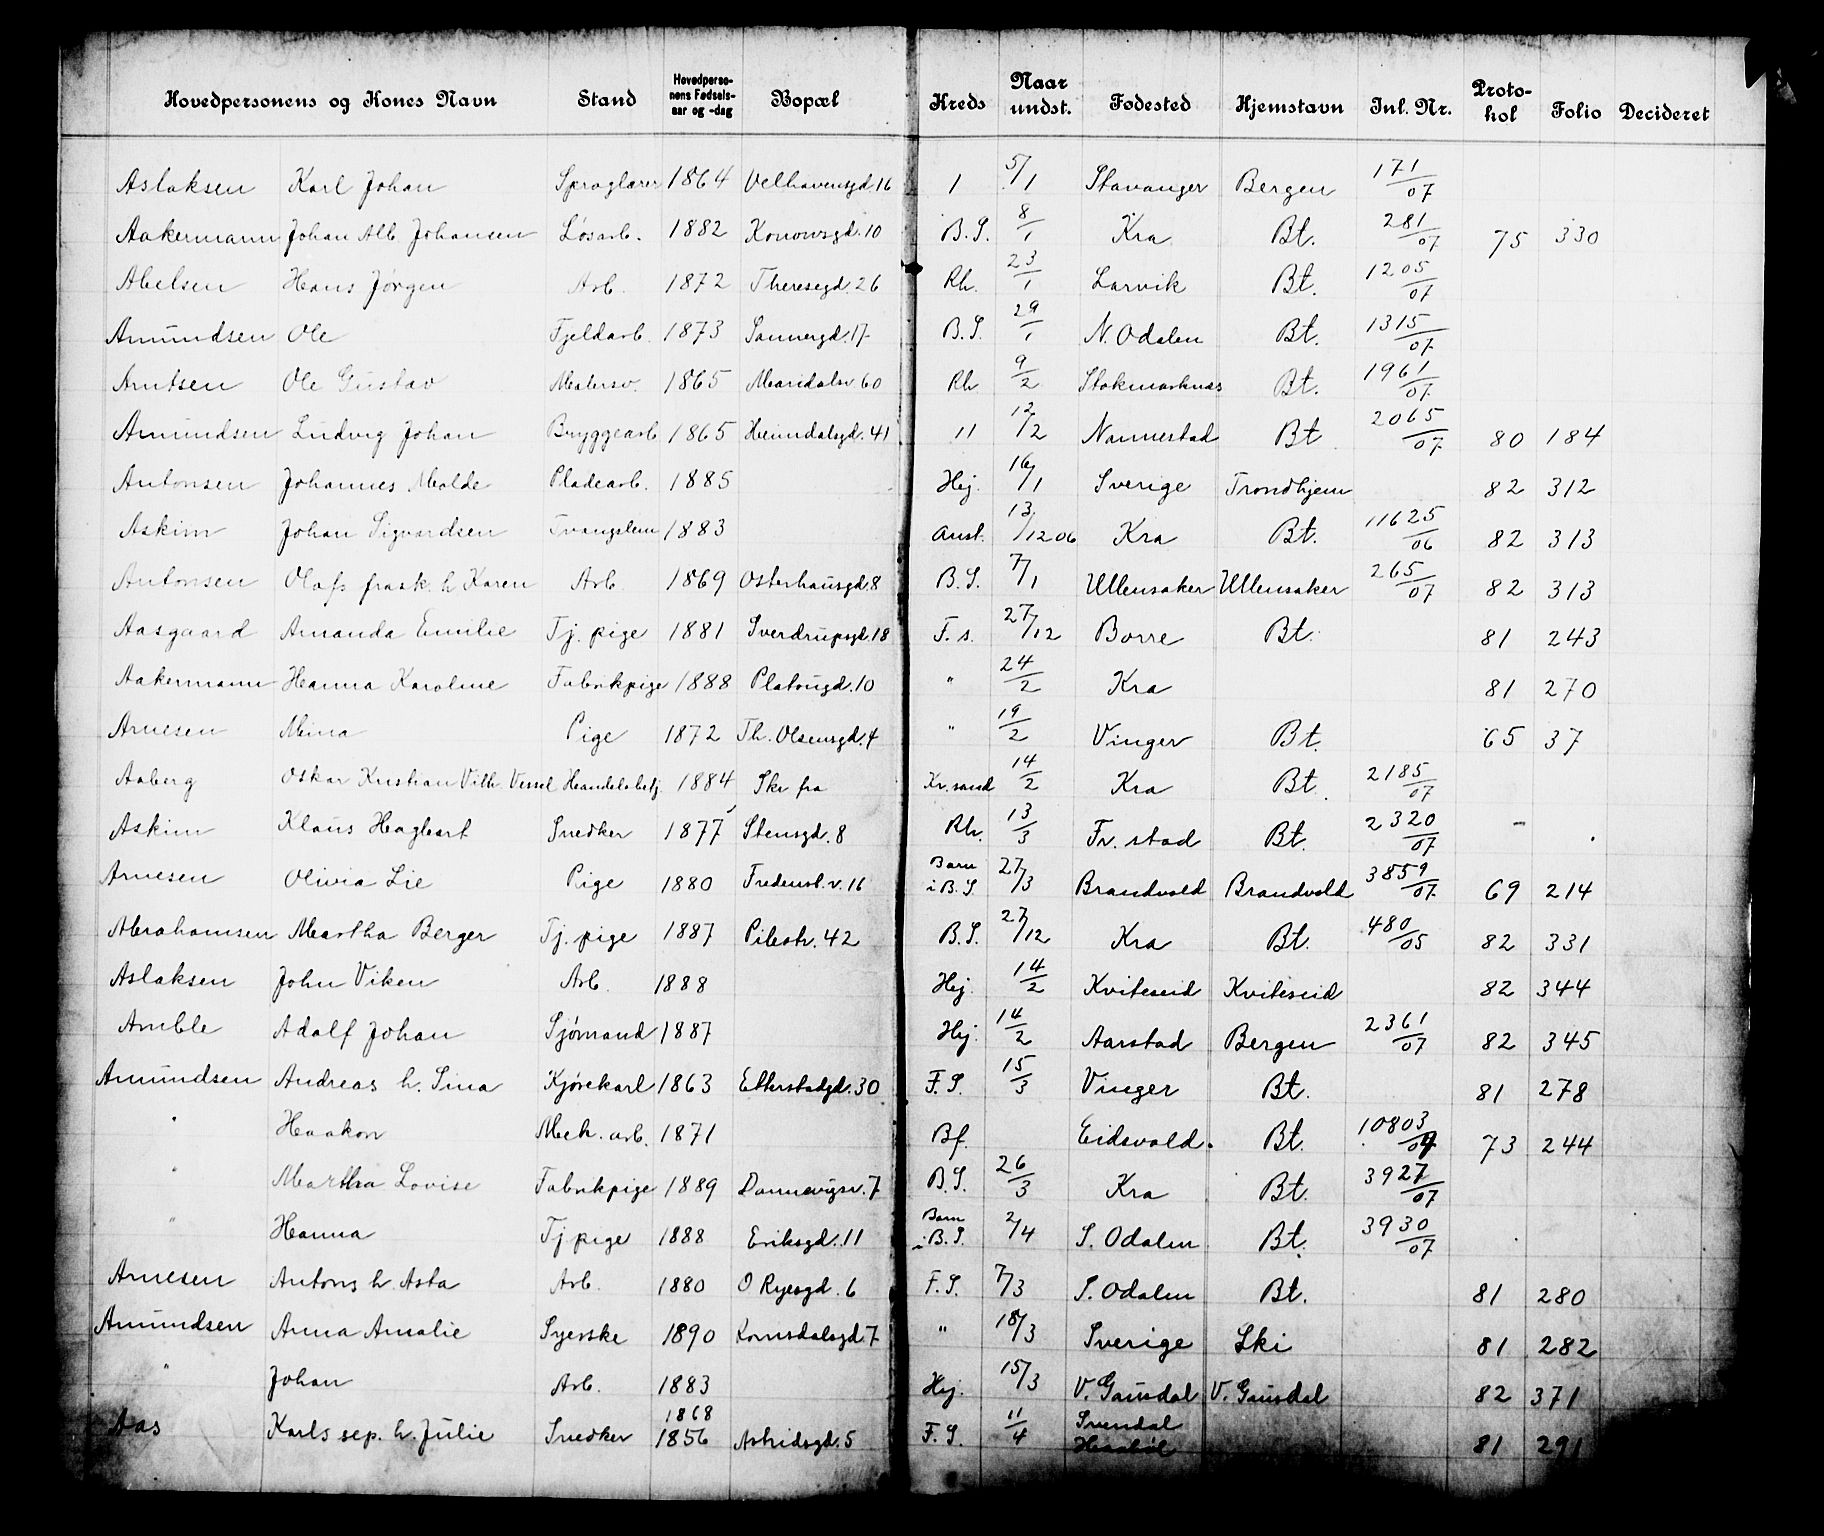 Hovedpersonens og Kones Navn Stand Hovedpersonens Fødselsaar og -dag Bopæl Kreds Naar undst. Fødested Hjemstavn Inl. Nr. Protokol Folio Decideret
Aslaksen Karl Johan Sproglærer 1864 Velhavensgd. 16 1 5/1 Stavanger Bergen 171/07
Aakermann Johan Alb. Johansen Løsarb. 1882 Konowsgd. 10 B.S. 8/1 Kra Bt. 281/07 75 330
Abelsen Hans Jørgen Arb. 1872 Theresegd. 26 Rh. 23/1 Larvik Bt. 1205/07
Amundsen Ole Fjeldarb. 1873 Sannergd. 17 B.S. 29/1 N. Odalen Bt. 1315/07
Arntsen Ole Gustav Malersv. 1865 Maridalsv. 60 Rh 9/2 Stokmarknæs Bt. 1961/07
Amundsen Ludvig Johan Bryggearb 1865 Heimdalsgd. 41 11 12/2 Nannestad Bt 2065/07 80 184
Antonsen Johannes Molde Pladearb. 1885 Hej. 16/1 Sverige Trondhjem 82 312
Askim Johan Sigvardsen Tvangslem 1883 Anst. 13/12 06 Kra Bt. 11625/06 82 313
Antonsen Olafs frask. h. Karen Arb. 1869 Osterhausgd. 8 B.S. 7/1 Ullensaker Ullensaker 265/07 82 313
Aasgaard Amanda Emilie Tj. pige 1881 Sverdrupsgd. 18 F. s. 27/12 Borre Bt. 81 243
Aakermann Hanna Karoline Fabrikpige 1888 Platougd. 10 " 24/2 Kra 81 270
Arnesen Mina Pige 1872 Th. Olsensgd. 4 " 19/2 Vinger Bt. 65 37
Aaberg Oskar Kristian Vilh. Vessel Handelsbetj 1884 Skr fra Kr.sand 14/2 Kra Bt. 2185/07
Askim Klaus Hagbart Snedker 1877 Stensgd. 8 Rh. 13/3 Fr. stad Bt. 2320/07 -
Arnesen Olivia Lie Pige 1880 Fredensb.v. 16 Barn i B.S. 27/3 Brandvold Brandvold 3859/07 69 214
Abrahamsen Martha Berger Tj. pige 1887 Pilestr. 42 B.S. 27/12 Kra Bt. 480/05 82 331
Aslaksen John Viken Arb. 1888 Hej. 14/2 Kviteseid Kviteseid 82 344
Amble Adolf Johan Sjømand 1887 Hej. 14/2 Aarstad Bergen 2361/07 82 345
Amundsen Andreas h. Sina Kjørekarl 1863 Etterstadgd. 30 F.S. 15/3 Vinger Bt. 81 278
" Haakon Mek. arb. 1871 Bf. Eidsvold. Bt. 10803 73 244
" Martha Lovise Fabrikpige 1889 Dannevigsv. 7 B.S. 26/3 Kra Bt. 3927/07
" Hanna Tj pige 1888 Eriksgd. 11 Barn i B.S. 2/4 S. Odalen Bt. 3930/07
Arnesen Antons h. Asta Arb. 1880 O Ryesgd. 6 F.S. 7/3 S. Odalen Bt. 81 280
Amundsen Anna Amalie Syerske 1890 Romsdalsgd. 7 " 18/3 Sverige Ski 81 282
" Johan Arb. 1883 Hej. 15/3 V. Gausdal V. Gausdal 82 371
Aas Karls sep. h. Julie Snedker 1868 1856 Astridsgd. 5 F.S. 11/4 81 291